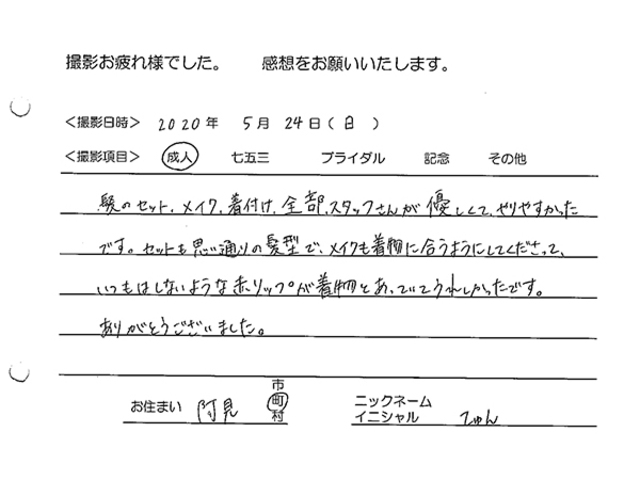 撮影お疲れ様でした。 感想をお願いいたします。
<撮影日時> 2020年 5月 24日(日)
<撮影項目> 成人 七五三 ブライダル 記念 その他
髪のセット、メイク、着付け、全部、スタッフさんが優しくて、やりやすかった
です。セットも思い通りの髪型で、メイクも着物に合うようにしてくださって、
いつもはしないような赤リップが着物とあっていてうれしかったです。
ありがとうございました。
お住まい 阿見 市町村
ニックネーム
イニシャル てゅん